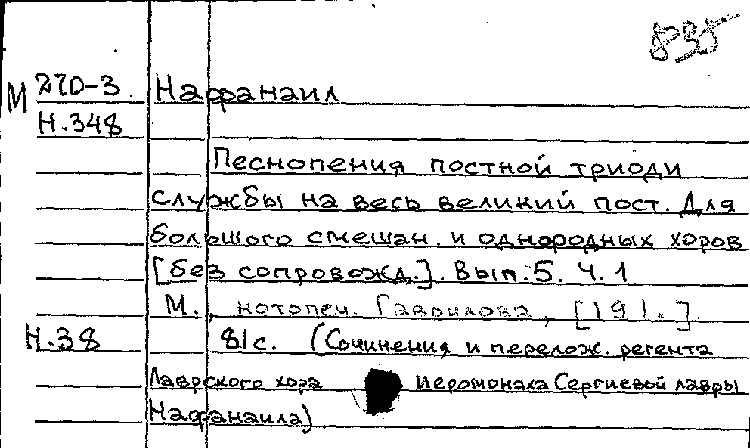 835
М 270-3. Нафанаил
Н.348
Песнопения постной триоди
службы на весь великий пост. Для
большого смешан. и однородных хоров
[без сопровожд.]. Вып. 5. Ч. 1
М., нотопеч. Гаврилова, [191.].
Н.38 81с. (Сочинения и перелож. регента
Лаврского хора иеромонаха Сергиевой лавры
Нафанаила)